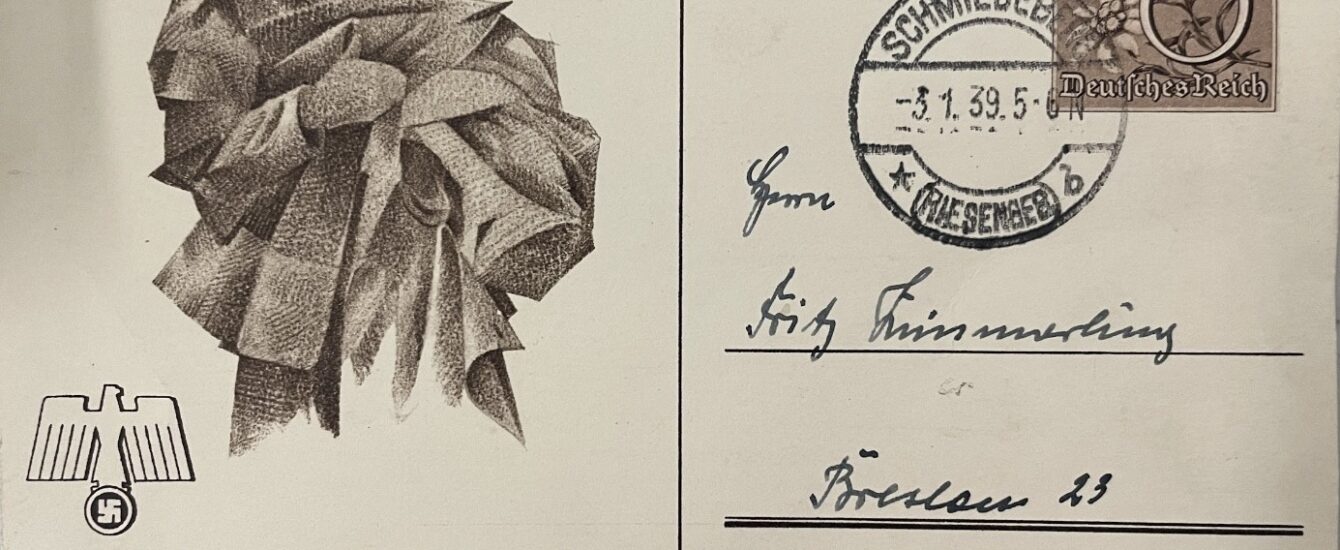 SCHMIEDEB
-3.1.39.5-6N
* (RIESENGEB.) b
Deutsches Reich
Herrn
Fritz Zimmerling
Breslau 23